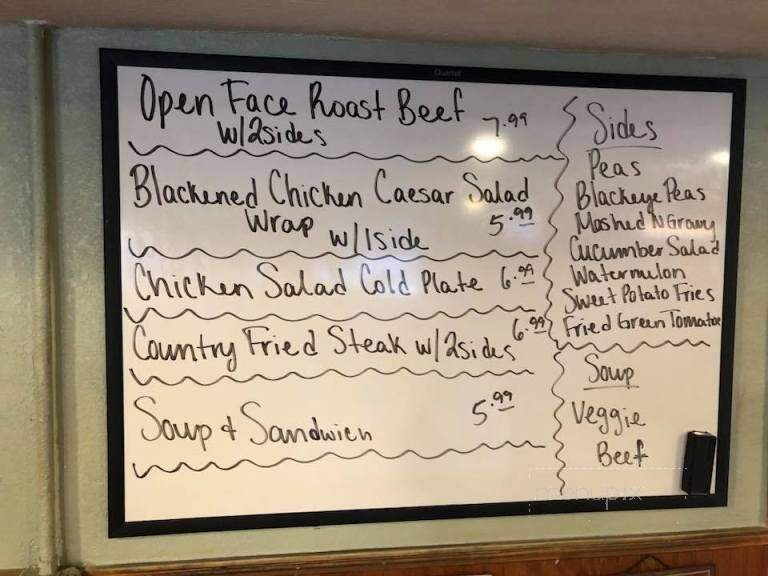 Quartet
Open Face Roast Beef 7.99
w/2sides
Blackened Chicken Caesar Salad
Wrap w/1side 5.99
Chicken Salad Cold Plate 6.99
Country Fried Steak w/2sides 6.99
Soup & Sandwich 5.99
Sides
Peas
Blackeye Peas
Mashed N Gravy
Cucumber Salad
Watermelon
Sweet Potato Fries
Fried Green Tomatoe
Soup
Veggie
Beef